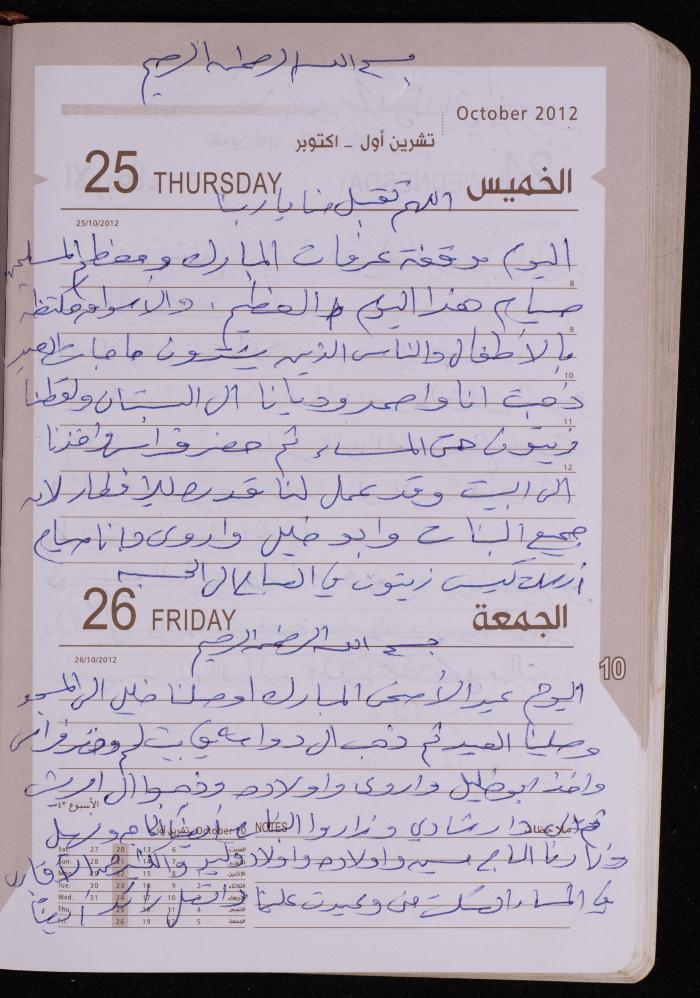 بسم الله الرحمن الرحيم
October 2012
تشرين أول - اكتوبر
25 THURSDAY الخميس
اللهم تقبل منا يا ربنا
25/10/2012
اليوم موقفة عرفات المبارك ومعظم المسلمين
8
صيام هذا اليوم العظيم، والأسواق مكتظة
9
بالأطفال والناس الذين يشترون حاجات العيد
10
ذهبت انا واحمد وديانا الى البستان ولقطنا
11
زيتون حتى المساء ثم حضر فراس واخذنا
12
الى البيت وقد عمل لنا قدره للإفطار لانه
جميع البنات وابو خليل واروى وانا صيام
أرسلت كيس زيتون في الصباح الى
26 FRIDAY الجمعة
بسم الله الرحمن الرحيم
26/10/2012
10
اليوم عيد الأضحى المبارك اوصلنا خليل الى المسجد
وصلينا العيد ثم ذهب الى وحضر فراس
واخذ ابو خليل واروى واولاده وذهبوا الى
الأسبوع ٤٣
رشادي وزاروا
October 10 تشرين أول NOTES ملاحظات
وزارنا الحاج واولاده واولاد وليد
في المساء مني وعيدت علينا واتصل رائد ايضا
Sat. 27 20 13 6 السبت
Sun. 28 21 14 7 الأحد
Mon. 29 22 15 8 الاثنين
Tue. 30 23 16 9 2 الثلاثاء
Wed. 31 24 17 10 3 الأربعاء
Thu. 25 18 11 4 الخميس
Fri. 26 19 12 5 الجمعة